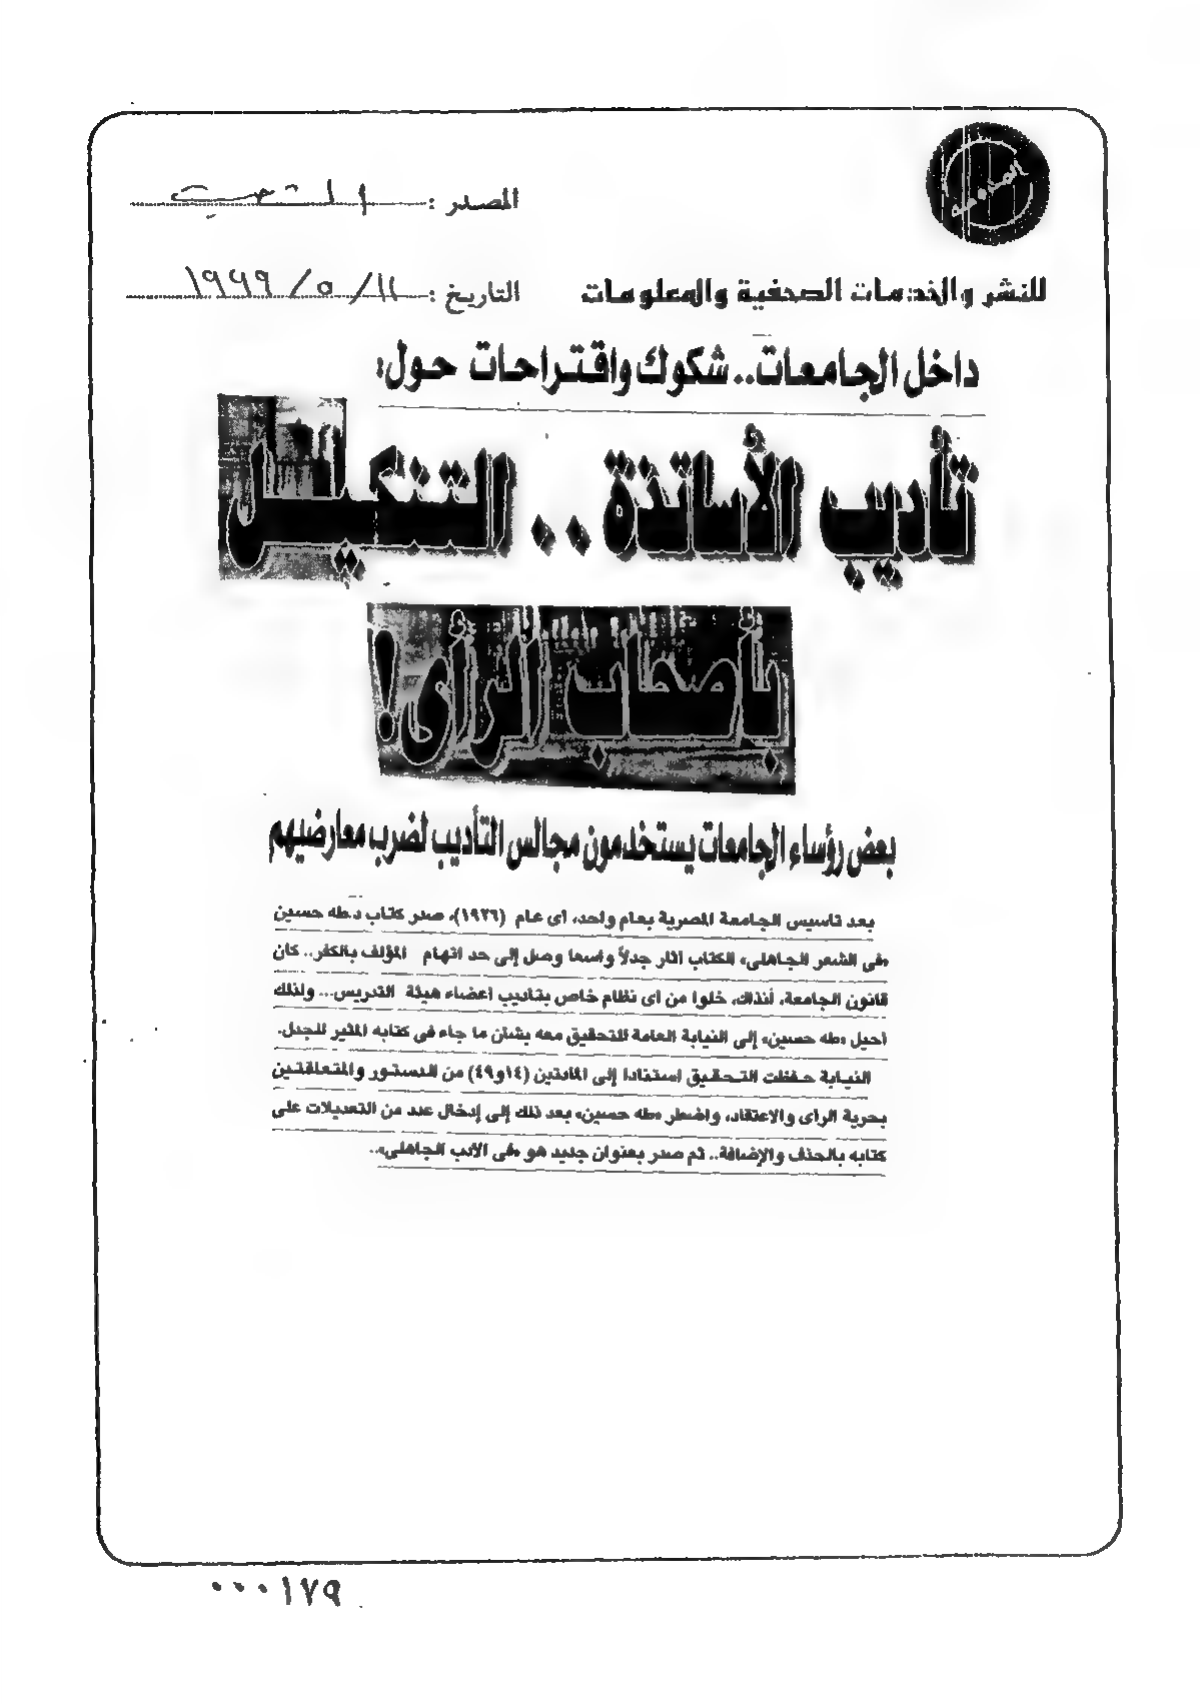 المصدر : الشعب
التاريخ : ١١ / ٥ / ١٩٩٩
للنشر والخدمات الصحفية والمعلومات
داخل الجامعات.. شكوك واقتراحات حول:
تأديب الأساتذة .. التنكيل
بأصحاب الرأى!
بعض رؤساء الجامعات يستخدمون مجالس التأديب لضرب معارضيهم
بعد تأسيس الجامعة المصرية بعام واحد، أى عام (١٩٢٦)، صدر كتاب د.طه حسين
«فى الشعر الجاهلى» الكتاب أثار جدلاً واسعا وصل إلى حد اتهام المؤلف بالكفر.. كان
قانون الجامعة، أنذاك، خلوا من أى نظام خاص بتأديب أعضاء هيئة التدريس... ولذلك
أحيل «طه حسين» إلى النيابة العامة للتحقيق معه بشأن ما جاء فى كتابه المثير للجدل.
النيابة حفظت التحقيق استنادا إلى المادتين (١٤و٤٩) من الدستور والمتعلقتين
بحرية الرأى والاعتقاد، واضطر «طه حسين» بعد ذلك إلى إدخال عدد من التعديلات على
كتابه بالحذف والإضافة.. ثم صدر بعنوان جديد هو «فى الأدب الجاهلى»..
٠٠٠١٧٩